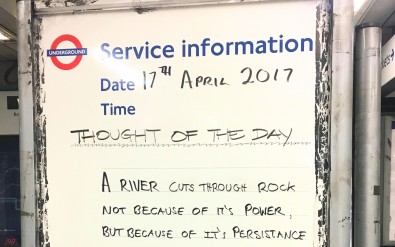 UNDERGROUND
Service information
Date 17TH APRIL 2017
Time
THOUGHT OF THE DAY
A RIVER CUTS THROUGH ROCK
NOT BECAUSE OF IT'S POWER,
BUT BECAUSE OF IT'S PERSISTANCE